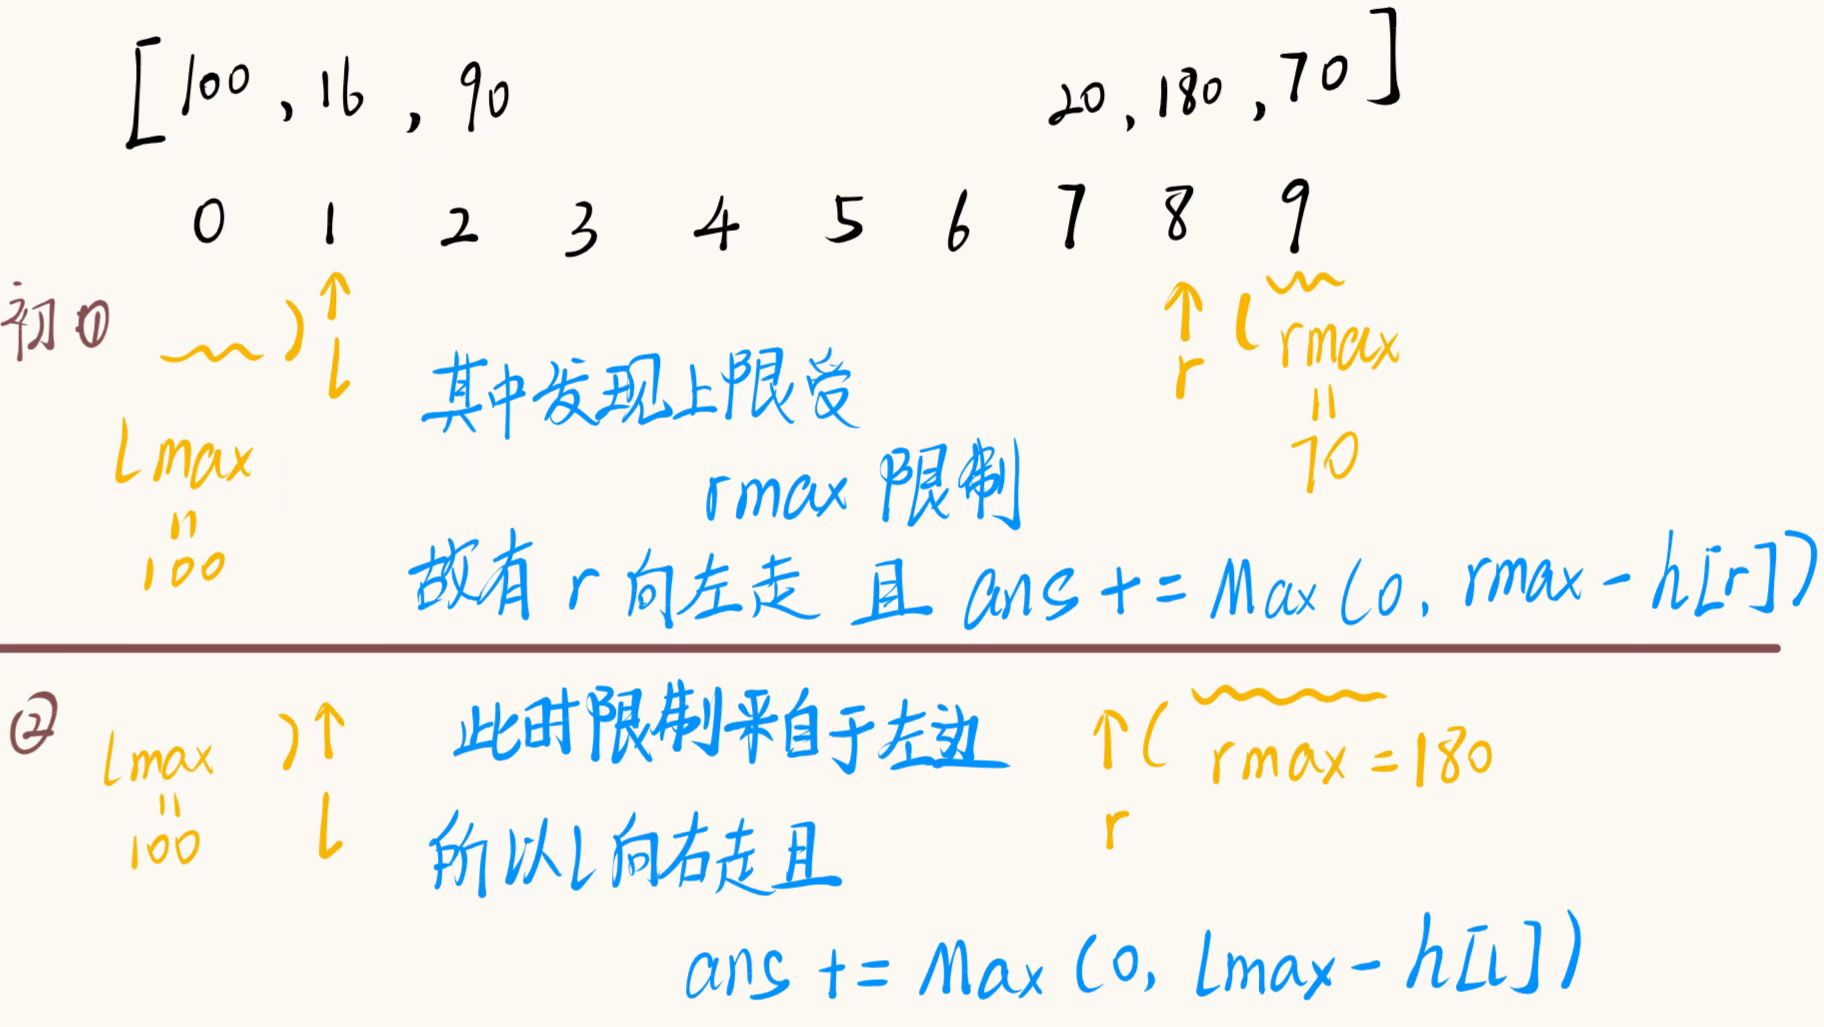 [100, 16, 90 20, 180, 70]
0 1 2 3 4 5 6 7 8 9
初①
l
r
lmax
=
100
rmax
=
70
其中发现上限受
rmax 限制
故有 r 向左走 且 ans += Max(0, rmax - h[r])
②
lmax
=
100
l
此时限制来自于左边
r
rmax = 180
所以l向右走且
ans += Max(0, lmax - h[l])